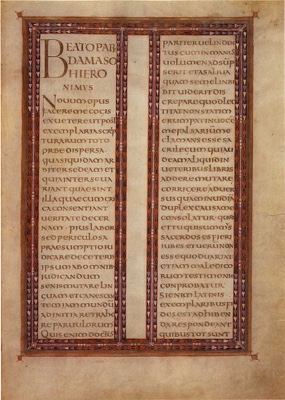 BEATO PAB
DAMASO
HIERO
NIMUS
NOUUM OPUS
FACERE ME COGIS
EX UETERE UT POST
EXEMPLARIA SCRIP
TURARUM TOTO
ORBE DISPERSA
QUASI QUIDAM AR
BITER SEDEAM ET
QUIA INTER SE UA
RIANT QUAE SINT
ILLA QUAE CUM GRE
CA CONSENTIANT
UERITATE DECER
NAM · PIUS LABOR
SED PERICULOSA
PRAESUMPTIO IU
DICARE DE CETERIS
IPSUM AB OMNIB
IUDICANDUM
SENIS MUTARE LIN
GUAM ET CANESCEN
TEM IAM MUNDUM
AD INITIA RETRAHE
RE PARUULORUM
QUIS ENIM DOCTUS
PARITER UEL INDOC
TUS CUM IN MANUS
UOLUMEN ADSUMP
SERIT ET A SALIUA
QUAM SEMEL INBI
BIT UIDERIT DIS
CREPARE QUOD LEC
TITAT NON STATIM
ERUMPAT IN UOCE
ME FALSARIUM ME
CLAMANS ESSE SA
CRILEGUM QUI AU
DEAM ALIQUID IN
UETERIBUS LIBRIS
ADDERE MUTARE
CORRIGERE ADUER
SUS QUAM INUIDIAM
DUPLEX CAUSA ME
CONSOLATUR · QUOD
ET TU QUI SUMMUS
SACERDOS ES FIERI
IUBES ET UERUM NON
ESSE QUOD UARIAT
ETIAM MALEDICO
RUM TESTIMONIO
CONPROBATUR
SI ENIM LATINIS
EXEMPLARIBUS FI
DES EST ADHIBEN
DA RESPONDEANT
QUIBUS TOT SUNT